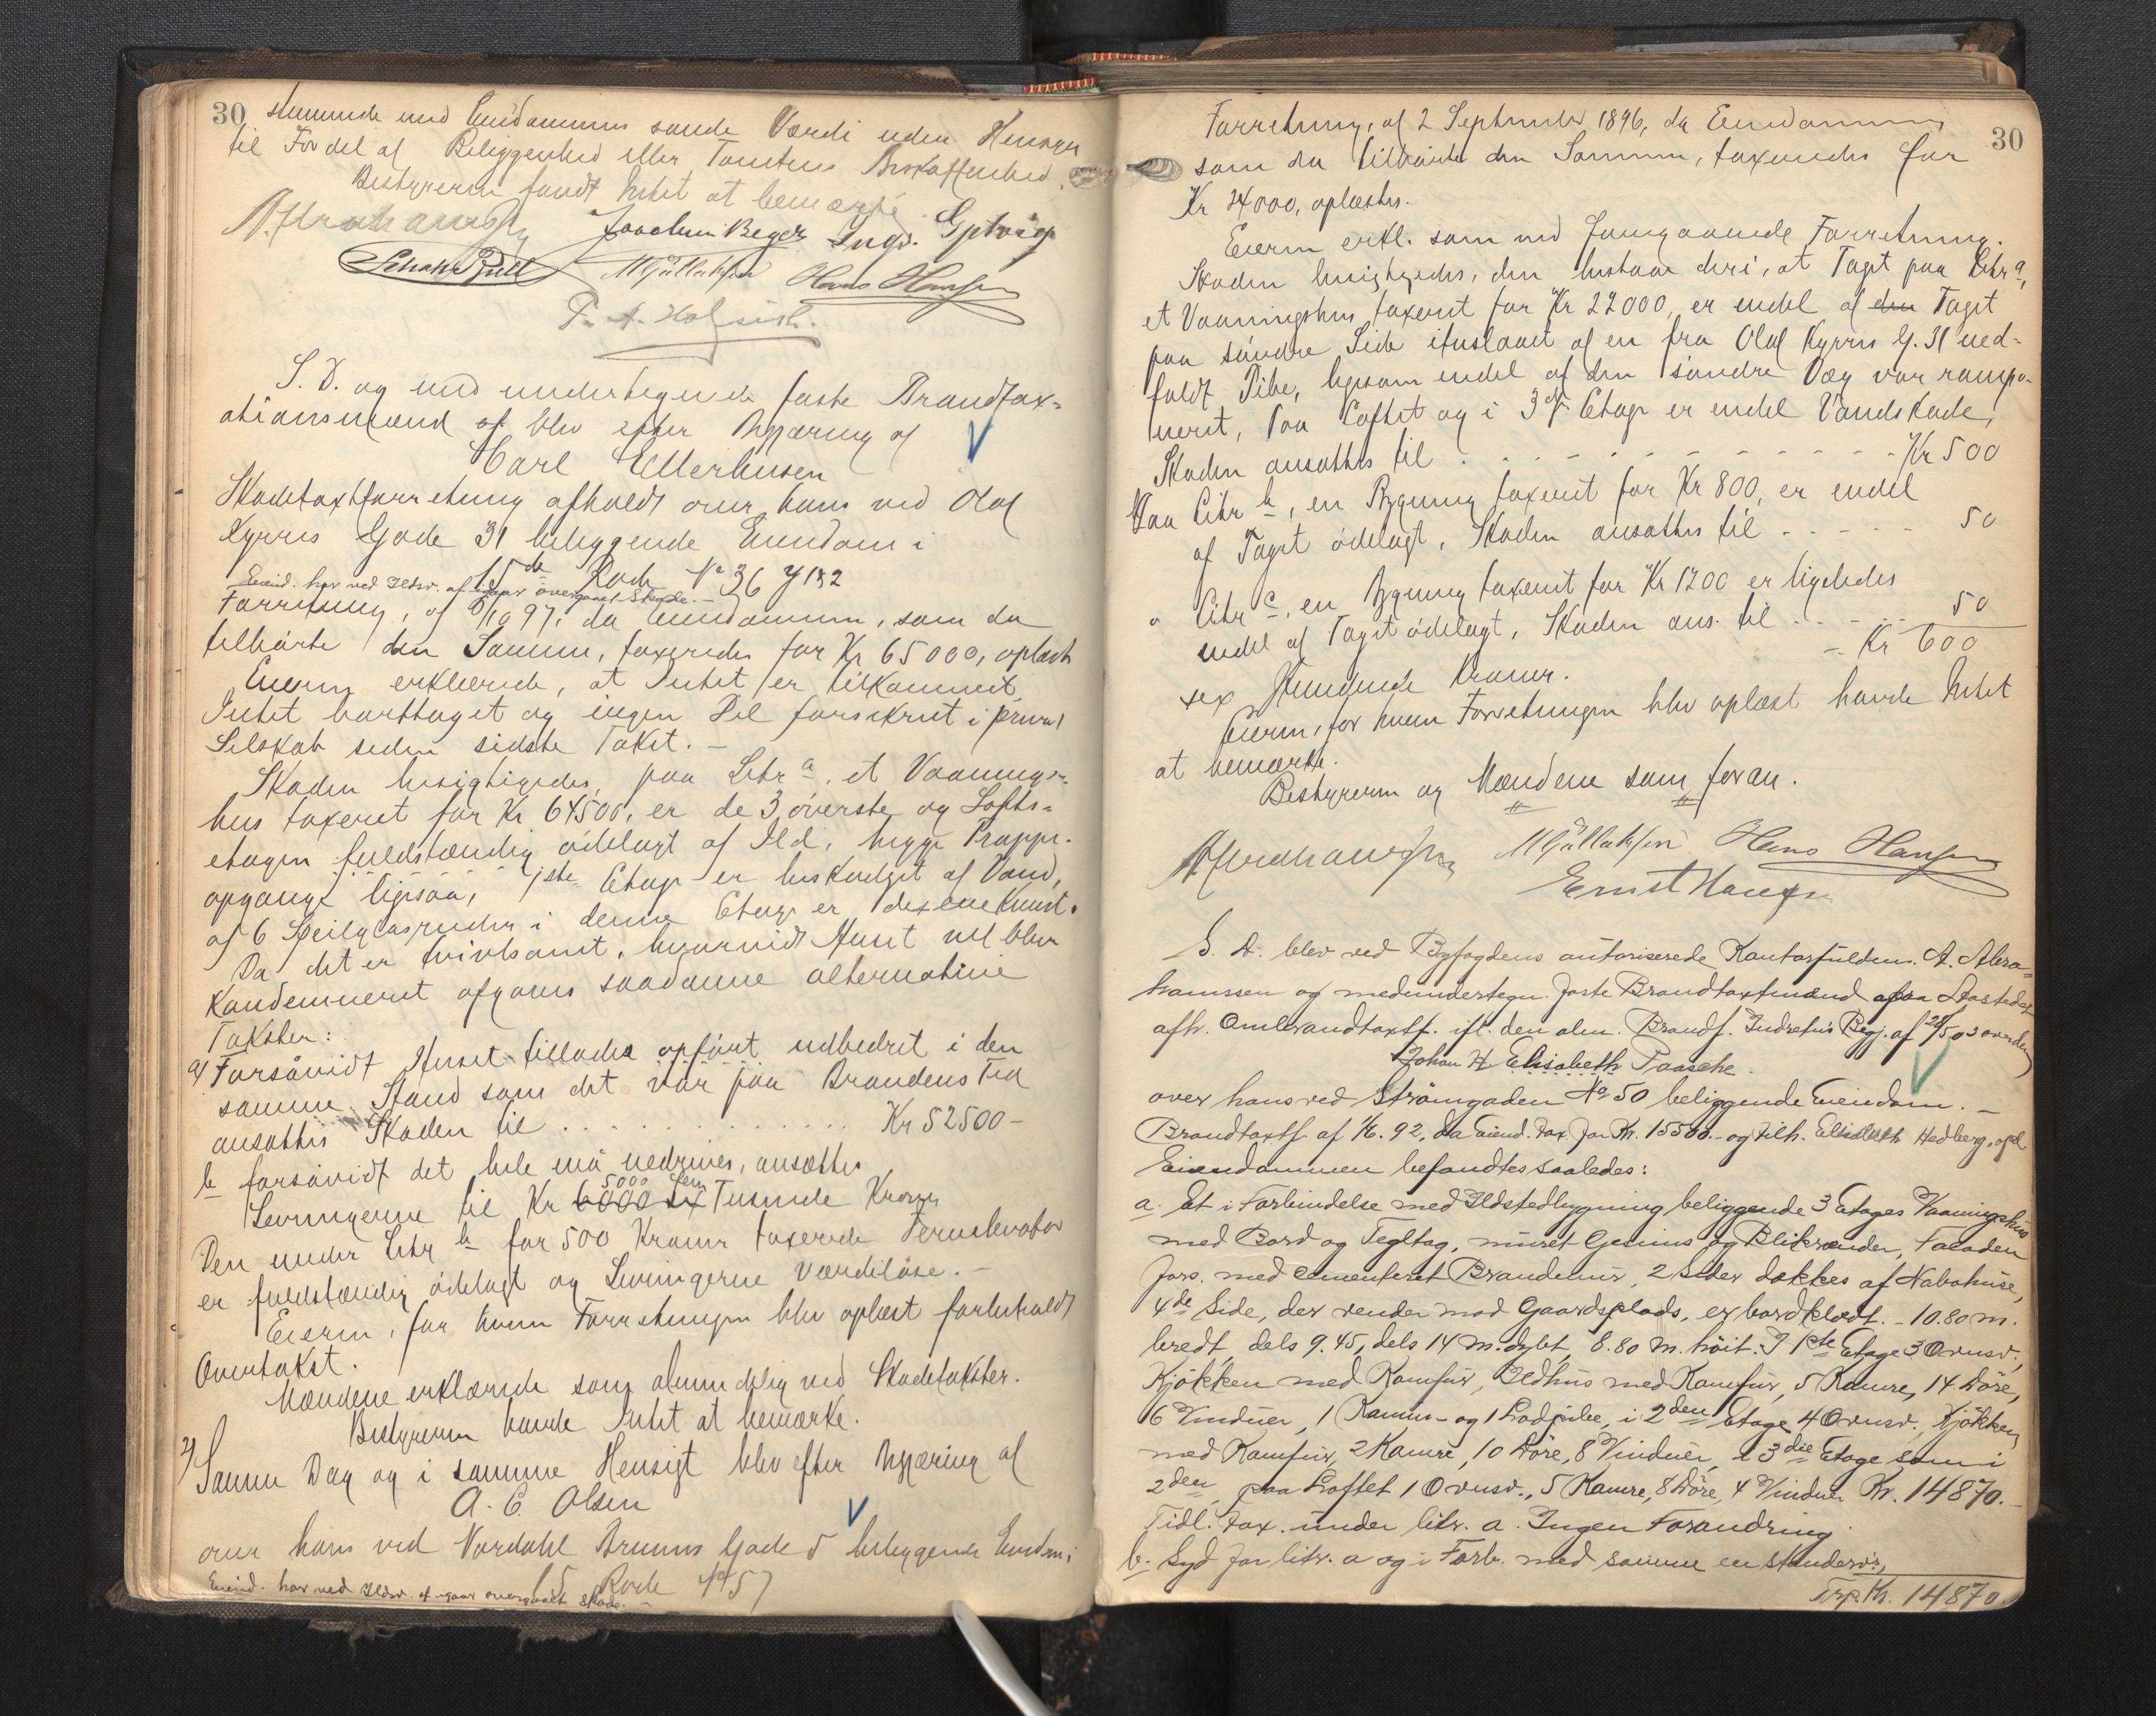 30
stemmende med Eiendommens sande Værdi uden Hensyn
til Fordel af Beliggenhed eller Tomtens Beskaffenhed.
Bestyreren fandt Intet at bemærke
A. Abrahamssen Joachim Beyer Ingv.
M Gullaksen Hans Hansen
S. D. og med undertegnede faste Brandtax-
ationsmænd af blev efter Begjæring af
Carl Ellerhusen
Skadetaxtforretning afholdt over hans ved Olaf
Kyrres Gade 31 beliggende Eiendom i
15de Rode No 36 y 182
Eiend. har ved Ildsv. af igaar overgaaet Skade. –
Forretning, af 6/10 97, da Eiendommen, som da
tilhørte den Samme, taxeredes for Kr 65000, oplæst
Eieren erklærede, at Intet er tilkommet,
Intet borttaget og ingen Del forsikret i privat
Selskab siden sidste Takst. –
Skaden besigtigedes, paa Litr a, et Vaanings-
hus taxeret for Kr 64500, er de 3 øverste og Lofts-
etagen fuldstændig ødelagt af Ild, begge Trappe-
opgange ligesaa, 1ste Etage er beskadiget af Vand,
af 6 Speilglasruder i denne Etage er
Da det er tvivlsomt, hvorvidt Huset vil blive
Kondemneret afgaves saadanne alternative
Takster:
a/ Forsåvidt Huset tillades opført udbedret i den
samme Stand som det var paa Brandens Tid
ansattes Skaden til . . . . . . . . . . . . . Kr 52500 –
b forsåvidt det hele må nedrives, ansættes
5000 fem
Levningerne til Kr 6000 sex Tusinde Kroner
Den under Litr b for 500 Kroner taxerede Vareelevator
er fuldstændig ødelagt og Levningerne værdiløse. –
Eieren, for hvem Forretningen blev oplæst forbeholdt
Overtakst.
Mændene erklærede som almindelig ved Skadetakster.
Bestyreren havde Intet at bemærke.
2/ Samme Dag og i samme Hensigt blev efter Begjæring af
A. C. Olsen
over hans ved Nordahl Bruuns Gade 5 beliggende Eiendom i
15 Rode No 57
Eiend. har ved Ildsv. af igaar overgaaet Skade. –
30
Forretning, af 2 September 1896, da Eiendommen
som da tilhørte den Samme, taxeredes for
Kr 24000, oplæstes.
Eieren erkl. som ved foregaaende Forretning.
Skaden besigtigedes, den bestaar deri, at Taget paa Litr a,
et Vaaningshus taxeret for Kr 22000, er endel af den Taget
paa søndre Side ituslaaet af en fra Olaf Kyrres G. 31 ned-
faldt Pibe, ligesom endel af den søndre Væg var rampo-
neret, Paa Loftet og i 3die Etage er endel Vandskade,
Skaden ansattes til . . . . . . . . . . . . Kr 500
Paa Litr b, en Bygning taxeret for Kr 800, er endel
af Taget ødelagt, Skaden ansattes til . . . . . 50
" Litr c, en Bygning taxeret for Kr 1200 er ligeledes
endel af Taget ødelagt, Skaden ans. til . . . . . 50
Kr 600
sex Hundrede Kroner.
Eieren, for hvem Forretningen blev oplæst havde Intet
at bemærke.
Bestyreren og Mændene som foran.
A Abrahamssen M Gullaksen Hans Hansen
Ernst Hansen
S. D. blev ved Byfogdens autoriserede Kontorfuldm. A. Abra-
hamssen og medundertegn. faste Brandtaxtmænd paa Aastedet
afh. Ombrandtaxtf. ifl. den alm. Brandf. Indretn's Begj. af 28/5 03 over den
Johan H. Elisabeth Paasche
over hans ved Strømgaden No 50 beliggende Eiendom. –
Brandtaxtf. af 1/6. 92, da Eiend. tax. for Kr. 15500.- og tilh. Elisabeth Hedberg, opl
Eiendommen befandtes saaledes:
a. Et i Forbindelse med Ildstedbygning beliggende 3 Etages Vaaningshus
med Bord og Tegltag, muret Gesims og Blikrender, Facaden
fors. med cementeret Brandmur, 2 Sider dækkes af Nabohuse,
4de Side, der vender mod Gaardsplads, er bordklædt. – 10.80 m.
bredt, dels 9.45, dels 14 m. dybt, 8.80 m. høit. I 1ste Etage 3 Ovnsv.,
Kjøkken med Komfur, Ildhus med Komfur, 5 Kamre, 14 Døre,
6 Vinduer, 1 Kamin- og 1 Lodpibe, i 2den Etage 4 Ovnsv., Kjøkken
med Komfur, 2 Kamre, 10 Døre, 8 Vinduer, i 3die Etage som i
2den, paa Loftet 1 Ovnsv., 5 Kamre, 8 Døre, 4 Vinduer Kr. 14870.–
Tidl. tax. under litr. a. Ingen Forandring
b. Syd for litr. a og i Forb. med samme en
Trp. Kr. 14870.